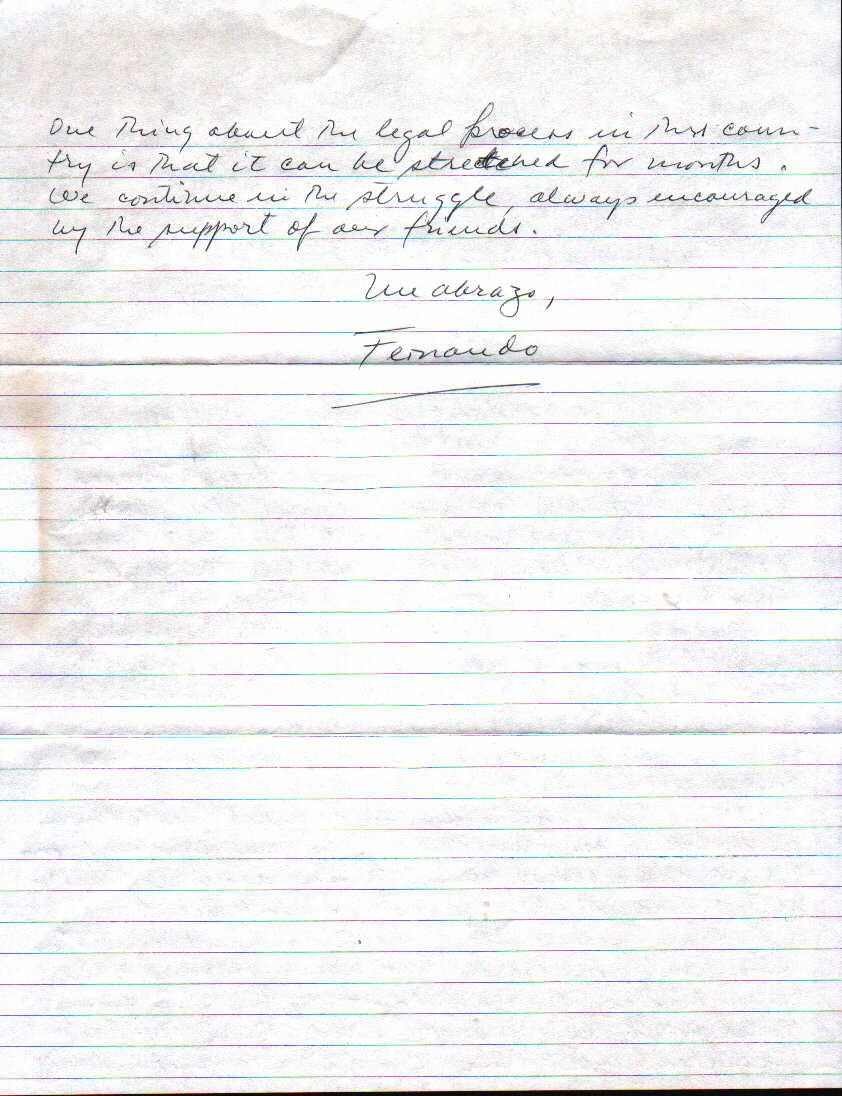 One thing about the legal process in this coun-
try is that it can be stretched for months.
We continue in the struggle, always encouraged
by the support of our friends.
Un abrazo,
Fernando